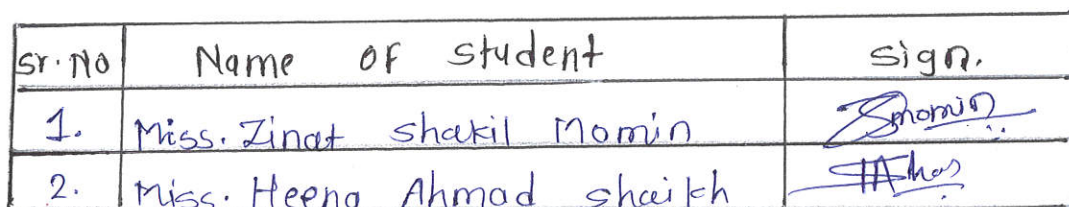 Sr. No Name OF Student Sign.
1. Miss. Zinat Shakil Momin ZSmomin
2. Miss. Heena Ahmad Shaikh